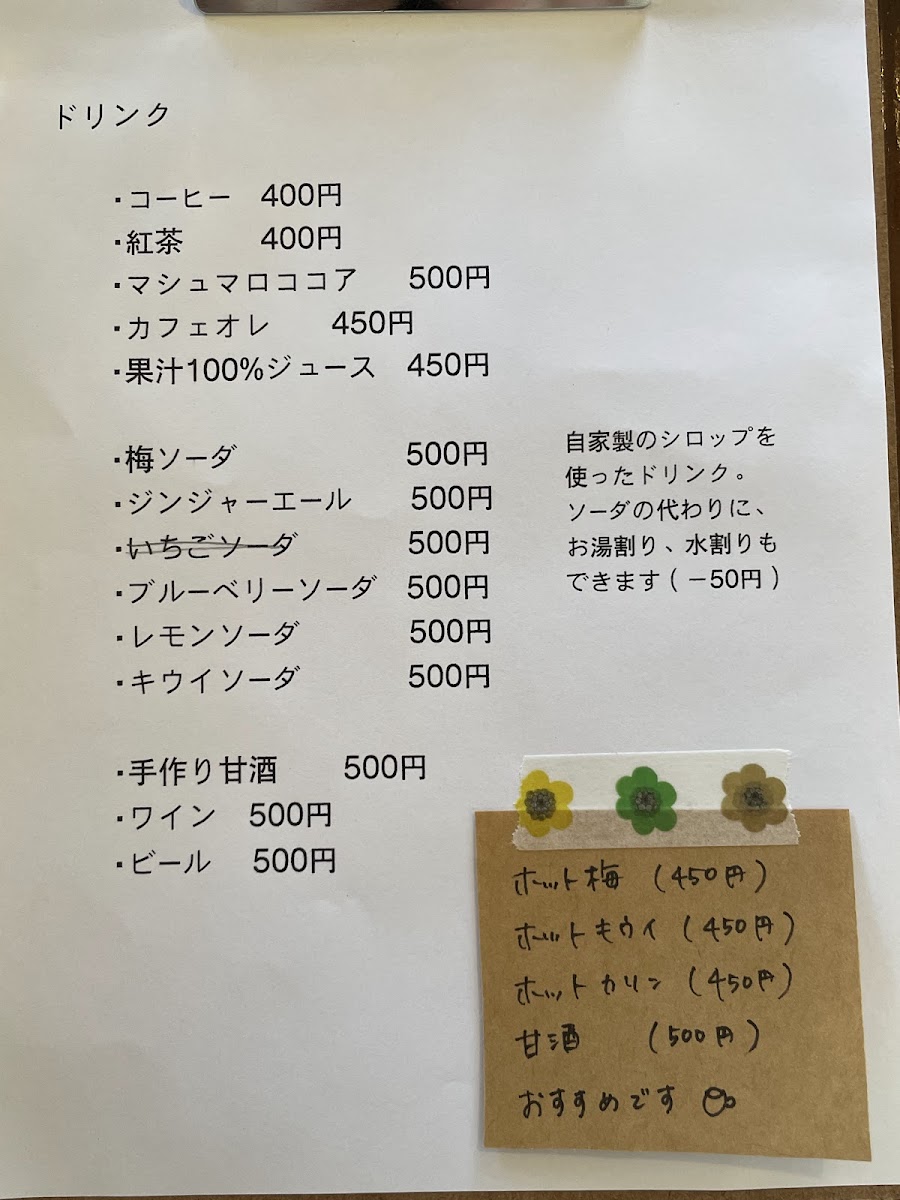 ドリンク
・コーヒー 400円
・紅茶 400円
・マシュマロココア 500円
・カフェオレ 450円
・果汁100%ジュース 450円
・梅ソーダ 500円
・ジンジャーエール 500円
・いちごソーダ 500円
・ブルーベリーソーダ 500円
・レモンソーダ 500円
・キウイソーダ 500円
自家製のシロップを
使ったドリンク。
ソーダの代わりに、
お湯割り、水割りも
できます(－50円)
・手作り甘酒 500円
・ワイン 500円
・ビール 500円
ホット梅 (450円)
ホットキウイ (450円)
ホットカリン (450円)
甘酒 (500円)
おすすめです